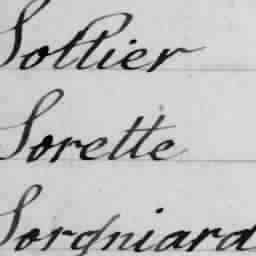 Sollier
Sorette
Sorgniard